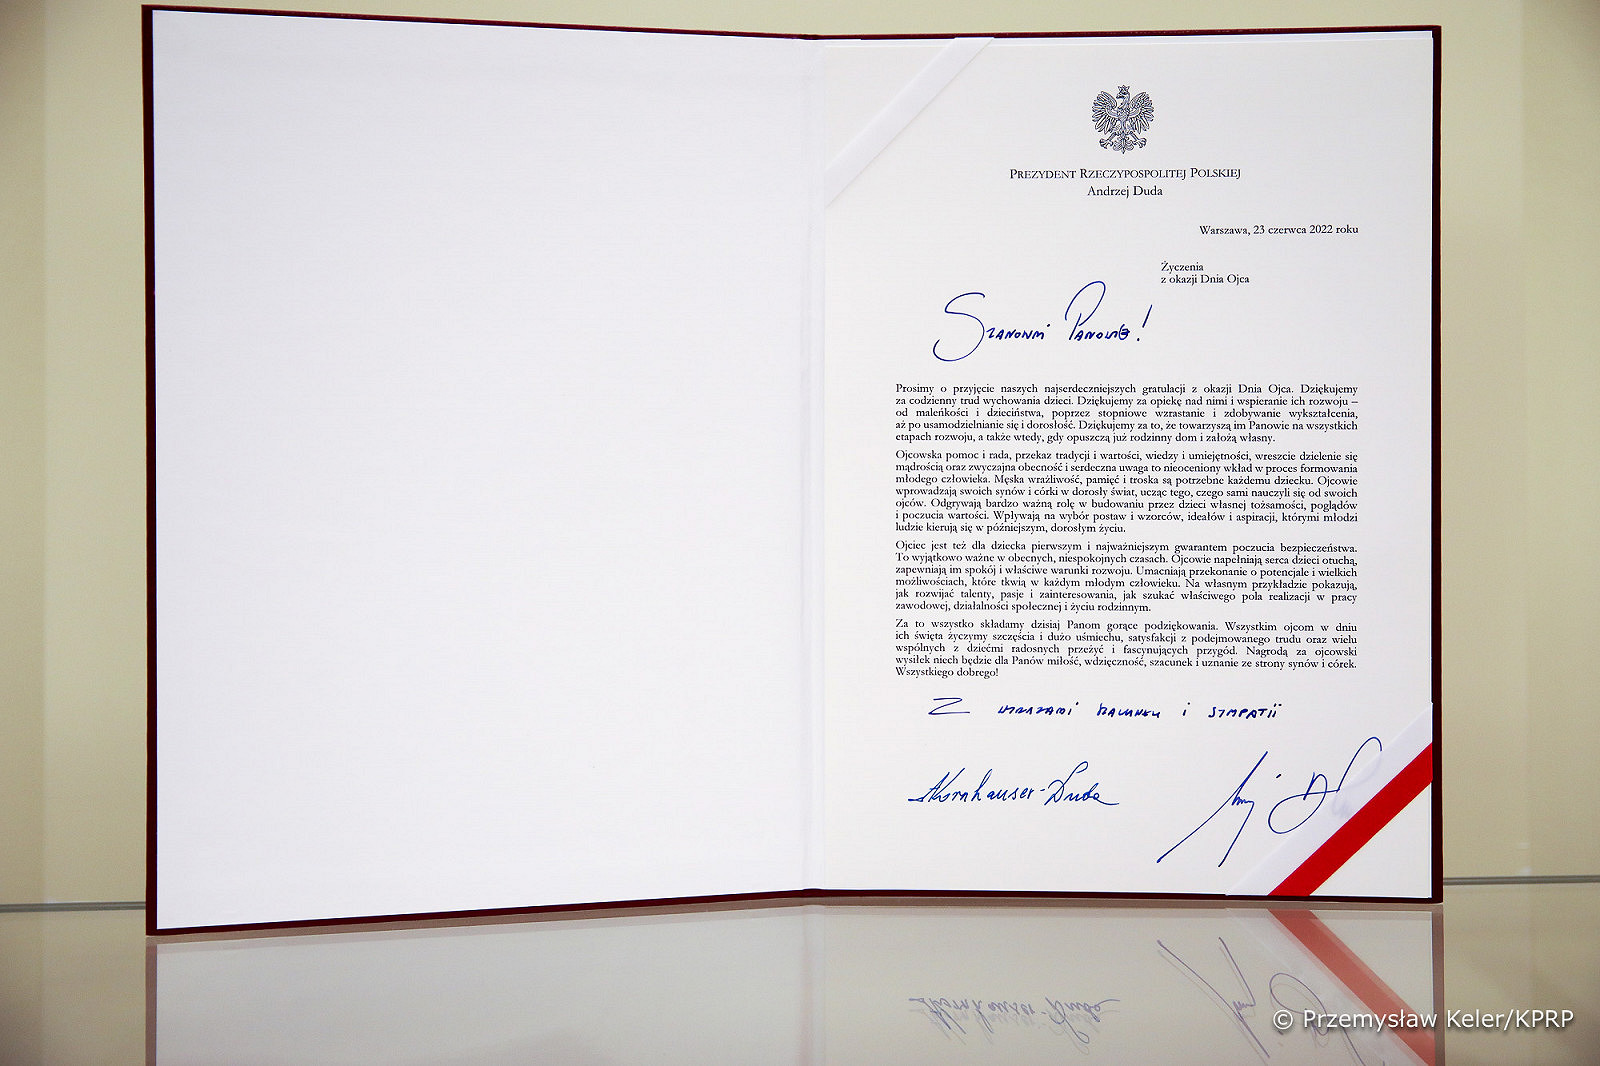 PREZYDENT RZECZYPOSPOLITEJ POLSKIEJ
Andrzej Duda
Warszawa, 23 czerwca 2022 roku
Życzenia
z okazji Dnia Ojca
Szanowni Panowie!
Prosimy o przyjęcie naszych najserdeczniejszych gratulacji z okazji Dnia Ojca. Dziękujemy
za codzienny trud wychowania dzieci. Dziękujemy za opiekę nad nimi i wspieranie ich rozwoju –
od maleńkości i dzieciństwa, poprzez stopniowe wzrastanie i zdobywanie wykształcenia,
aż po usamodzielnianie się i dorosłość. Dziękujemy za to, że towarzyszą im Panowie na wszystkich
etapach rozwoju, a także wtedy, gdy opuszczą już rodzinny dom i założą własny.
Ojcowska pomoc i rada, przekaz tradycji i wartości, wiedzy i umiejętności, wreszcie dzielenie się
mądrością oraz zwyczajna obecność i serdeczna uwaga to nieoceniony wkład w proces formowania
młodego człowieka. Męska wrażliwość, pamięć i troska są potrzebne każdemu dziecku. Ojcowie
wprowadzają swoich synów i córki w dorosły świat, ucząc tego, czego sami nauczyli się od swoich
ojców. Odgrywają bardzo ważną rolę w budowaniu przez dzieci własnej tożsamości, poglądów
i poczucia wartości. Wpływają na wybór postaw i wzorców, ideałów i aspiracji, którymi młodzi
ludzie kierują się w późniejszym, dorosłym życiu.
Ojciec jest też dla dziecka pierwszym i najważniejszym gwarantem poczucia bezpieczeństwa.
To wyjątkowo ważne w obecnych, niespokojnych czasach. Ojcowie napełniają serca dzieci otuchą,
zapewniają im spokój i właściwe warunki rozwoju. Umacniają przekonanie o potencjale i wielkich
możliwościach, które tkwią w każdym młodym człowieku. Na własnym przykładzie pokazują,
jak rozwijać talenty, pasje i zainteresowania, jak szukać właściwego pola realizacji w pracy
zawodowej, działalności społecznej i życiu rodzinnym.
Za to wszystko składamy dzisiaj Panom gorące podziękowania. Wszystkim ojcom w dniu
ich święta życzymy szczęścia i dużo uśmiechu, satysfakcji z podejmowanego trudu oraz wielu
wspólnych z dziećmi radosnych przeżyć i fascynujących przygód. Nagrodą za ojcowski
wysiłek niech będzie dla Panów miłość, wdzięczność, szacunek i uznanie ze strony synów i córek.
Wszystkiego dobrego!
Z wyrazami szacunku i sympatii
AKornhauser-Duda
© Przemysław Keler/KPRP